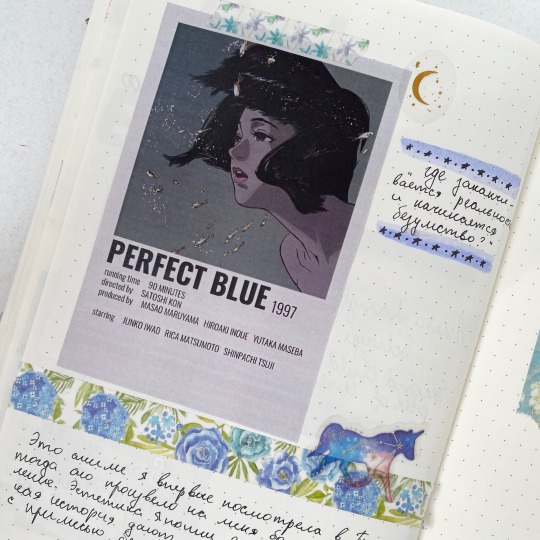 PERFECT BLUE 1997
running time 90 MINUTES
directed by SATOSHI KON
produced by MASAO MARUYAMA HIROAKI INOUE YUTAKA MASEBA
starring JUNKO IWAO RICA MATSUMOTO SHINPACHI TSUJI
где заканчи-
вается реальность
и начинается
безумство?
Это аниме я впервые посмотрела в
тогда оно произвело на меня
ление. Эстетика Японии
кая история дают
с примесью